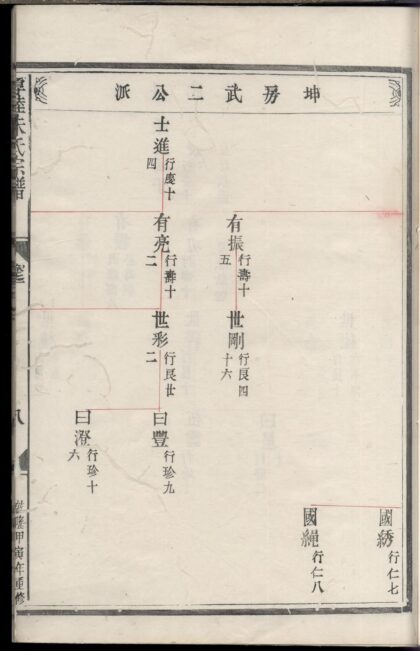 坤房武二公派
國綉 行仁七
國繩 行仁八
有振 行壽十五
世剛 行艮四十六
士進 行慶十四
有亮 行壽十二
世彩 行艮世二
曰豐 行珍九
曰澄 行珍十六
朱氏宗譜
八
甲寅年重修